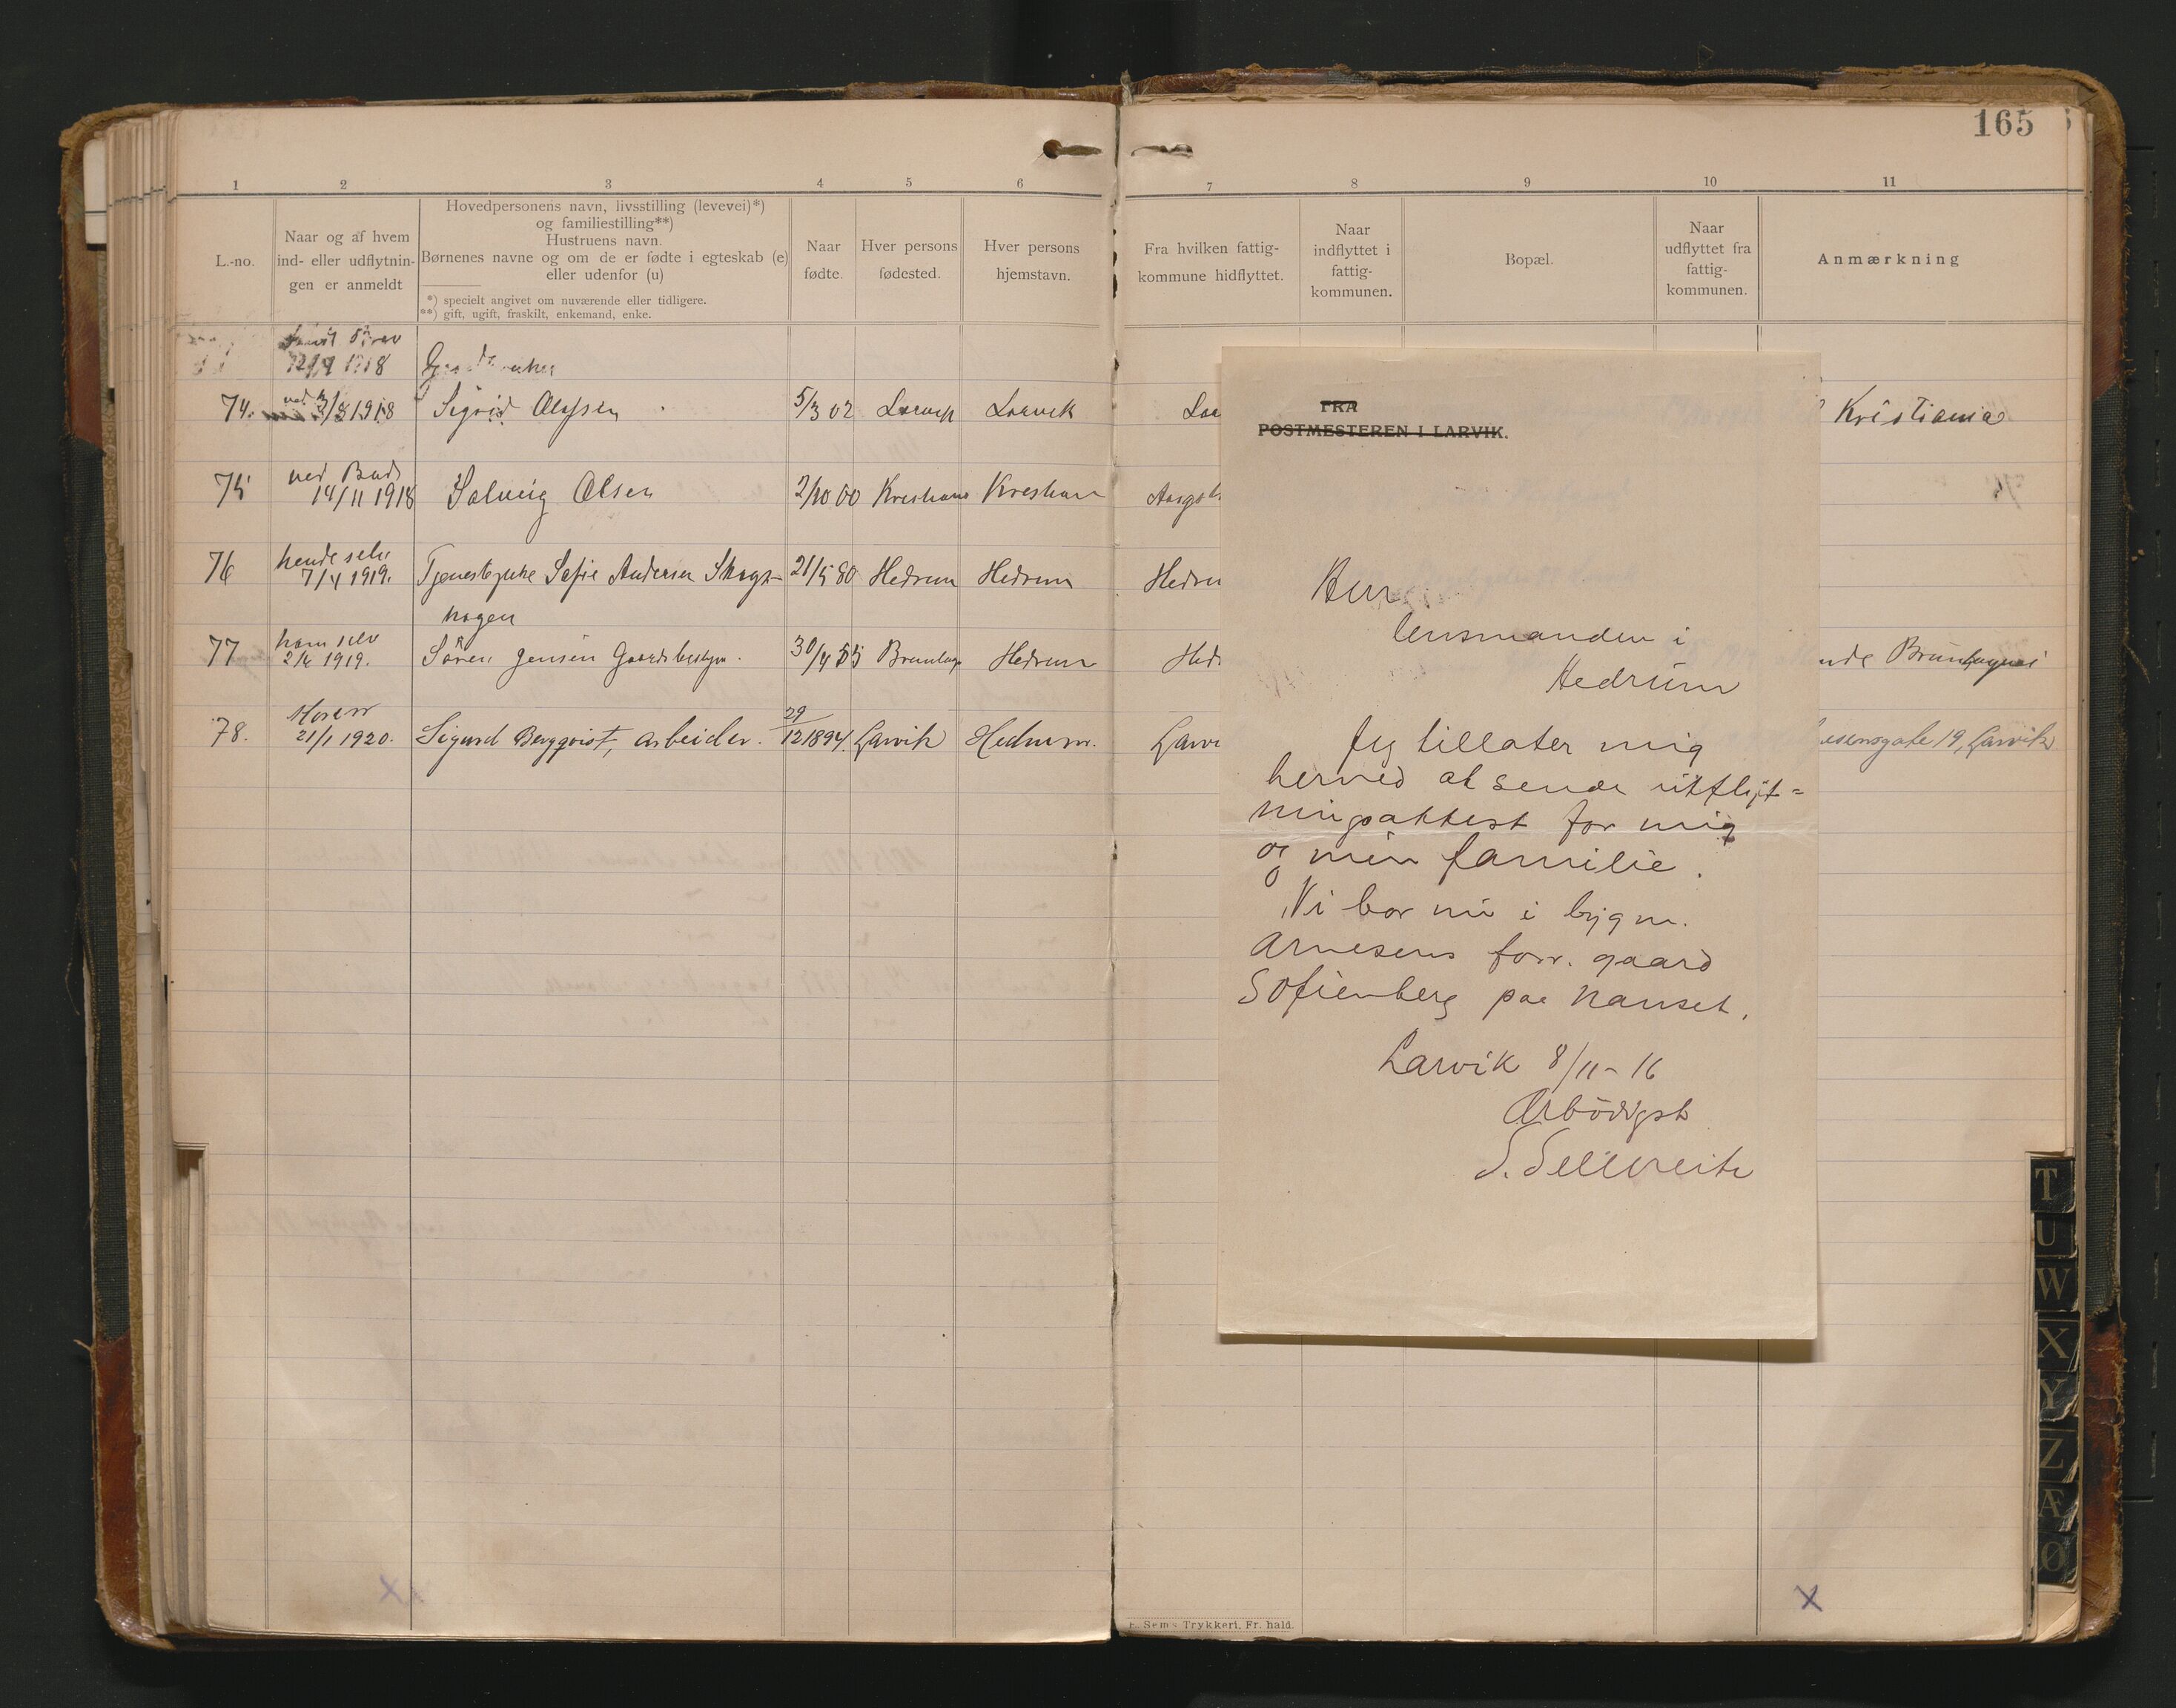 165
1 2 3 4 5 6
L.-no.
Naar og af hvem
ind- eller udflytnin-
gen er anmeldt
Hovedpersonens navn, livsstilling (levevei)*)
og familiestilling**)
Hustruens navn.
Børnenes navne og om de er fødte i egteskab (e)
eller udenfor (u)
*) specielt angivet om nuværende eller tidligere.
**) gift, ugift, fraskilt, enkemand, enke.
Naar
fødte.
Hver persons
fødested.
Hver persons
hjemstavn.
1918
74. 3/8 1918 Sigrid Olsen 5/3 02 Larvik Larvik
ved Bud
75 14/11 1918 Solveig Olsen 2/10 00 Kristiania Kristiania
hende selv
76 7/4 1919. Tjenestepike Sofie Andersen Skogs- 21/5 80 Hedrum Hedrum
hagen
ham selv
77 2/4 1919. Søren Jensen Gaardsbestyr. 30/4 55 Brunlanes Hedrum
29
78. 21/1 1920. Sigurd Bergqvist, arbeider. 12 1894. Larvik Hedrum.
7 8 9 10 11
Fra hvilken fattig-
kommune hidflyttet.
Naar
indflyttet i
fattig-
kommunen.
Bopæl.
Naar
udflyttet fra
fattig-
kommunen.
Anmærkning
Lar
Kristiania
Hedru
Hedr
Larv
19, Larvik
FRA
POSTMESTEREN I LARVIK.
Herr
lensmanden i
Hedrum
Jeg tillater mig
herved at sende utflyt=
ningsattest for mig
og min familie.
Vi bor nu i bygm.
Arnesens forr. gaard
Sofienberg paa Nanset.
Larvik 8/11-16
Ærbödigst
S. Sellereite
E. Sem's Trykkeri, Fr. hald.
T
U
W
X
Y
Z
Æ
Ø